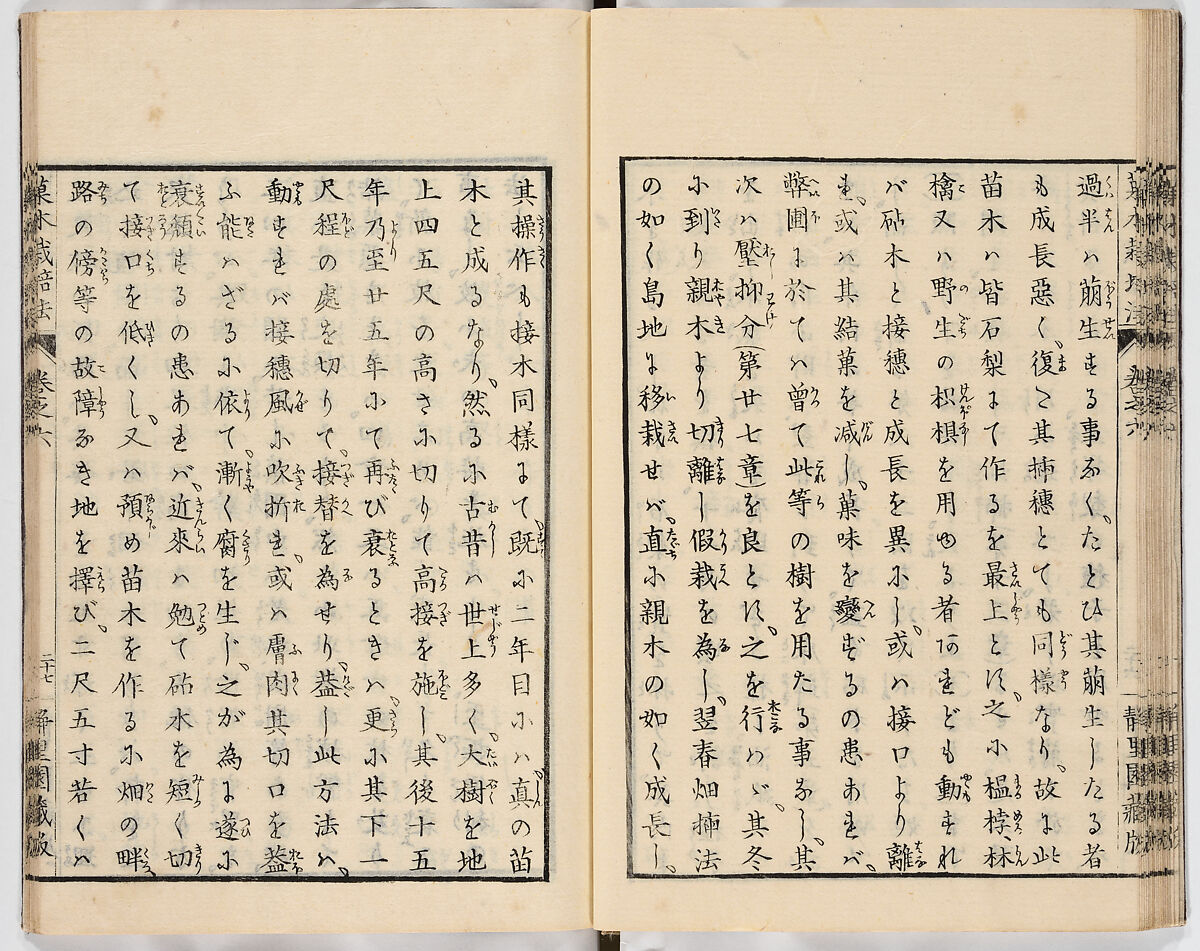 過半ハ萠生する事なく、たとひ其萠生したる者
も成長惡く、復た其揷穗とても同樣なり、故に此
苗木ハ皆石梨にて作るを最上とす、之に榲桲、林
檎又ハ野生の枳椇を用ゆる者あれども動もすれ
バ砧木と接穗と成長を異にし、或ハ接口より離
れ、或ハ其結菓を减し、菓味を變ずるの患あれバ、
弊圃に於てハ曾て此等の樹を用たる事なし、其
次ハ壓抑分(第廿七章)を良とす、之を行ハヾ、其冬
に到り親木より切離し假栽を為し、翌春畑揷法
の如く島地に移栽せバ、直に親木の如く成長し、
其操作も接木同樣にて、既に二年目にハ真の苗
木と成るなり、然るに古昔ハ世上多く大樹を地
上四五尺の高さに切りて高接を施し、其後十五
年乃至廿五年にて再び衰るときハ、更に其下一
尺程の處を切りて、接替を為せり、蓋し此方法ハ、
動もすれバ接穗風に吹折れ、或ハ膚肉其切口を蓋
ふ能ハざるに依て漸く腐を生じ、之が為に遂に
衰頽するの患あれバ、近來ハ勉て砧木を短く切
て接口を低くし、又ハ預め苗木を作るに畑の畔、
路の傍等の故障なき地を擇び、二尺五寸若くハ
菓木栽培法
卷之六
二十七
靜里園藏版